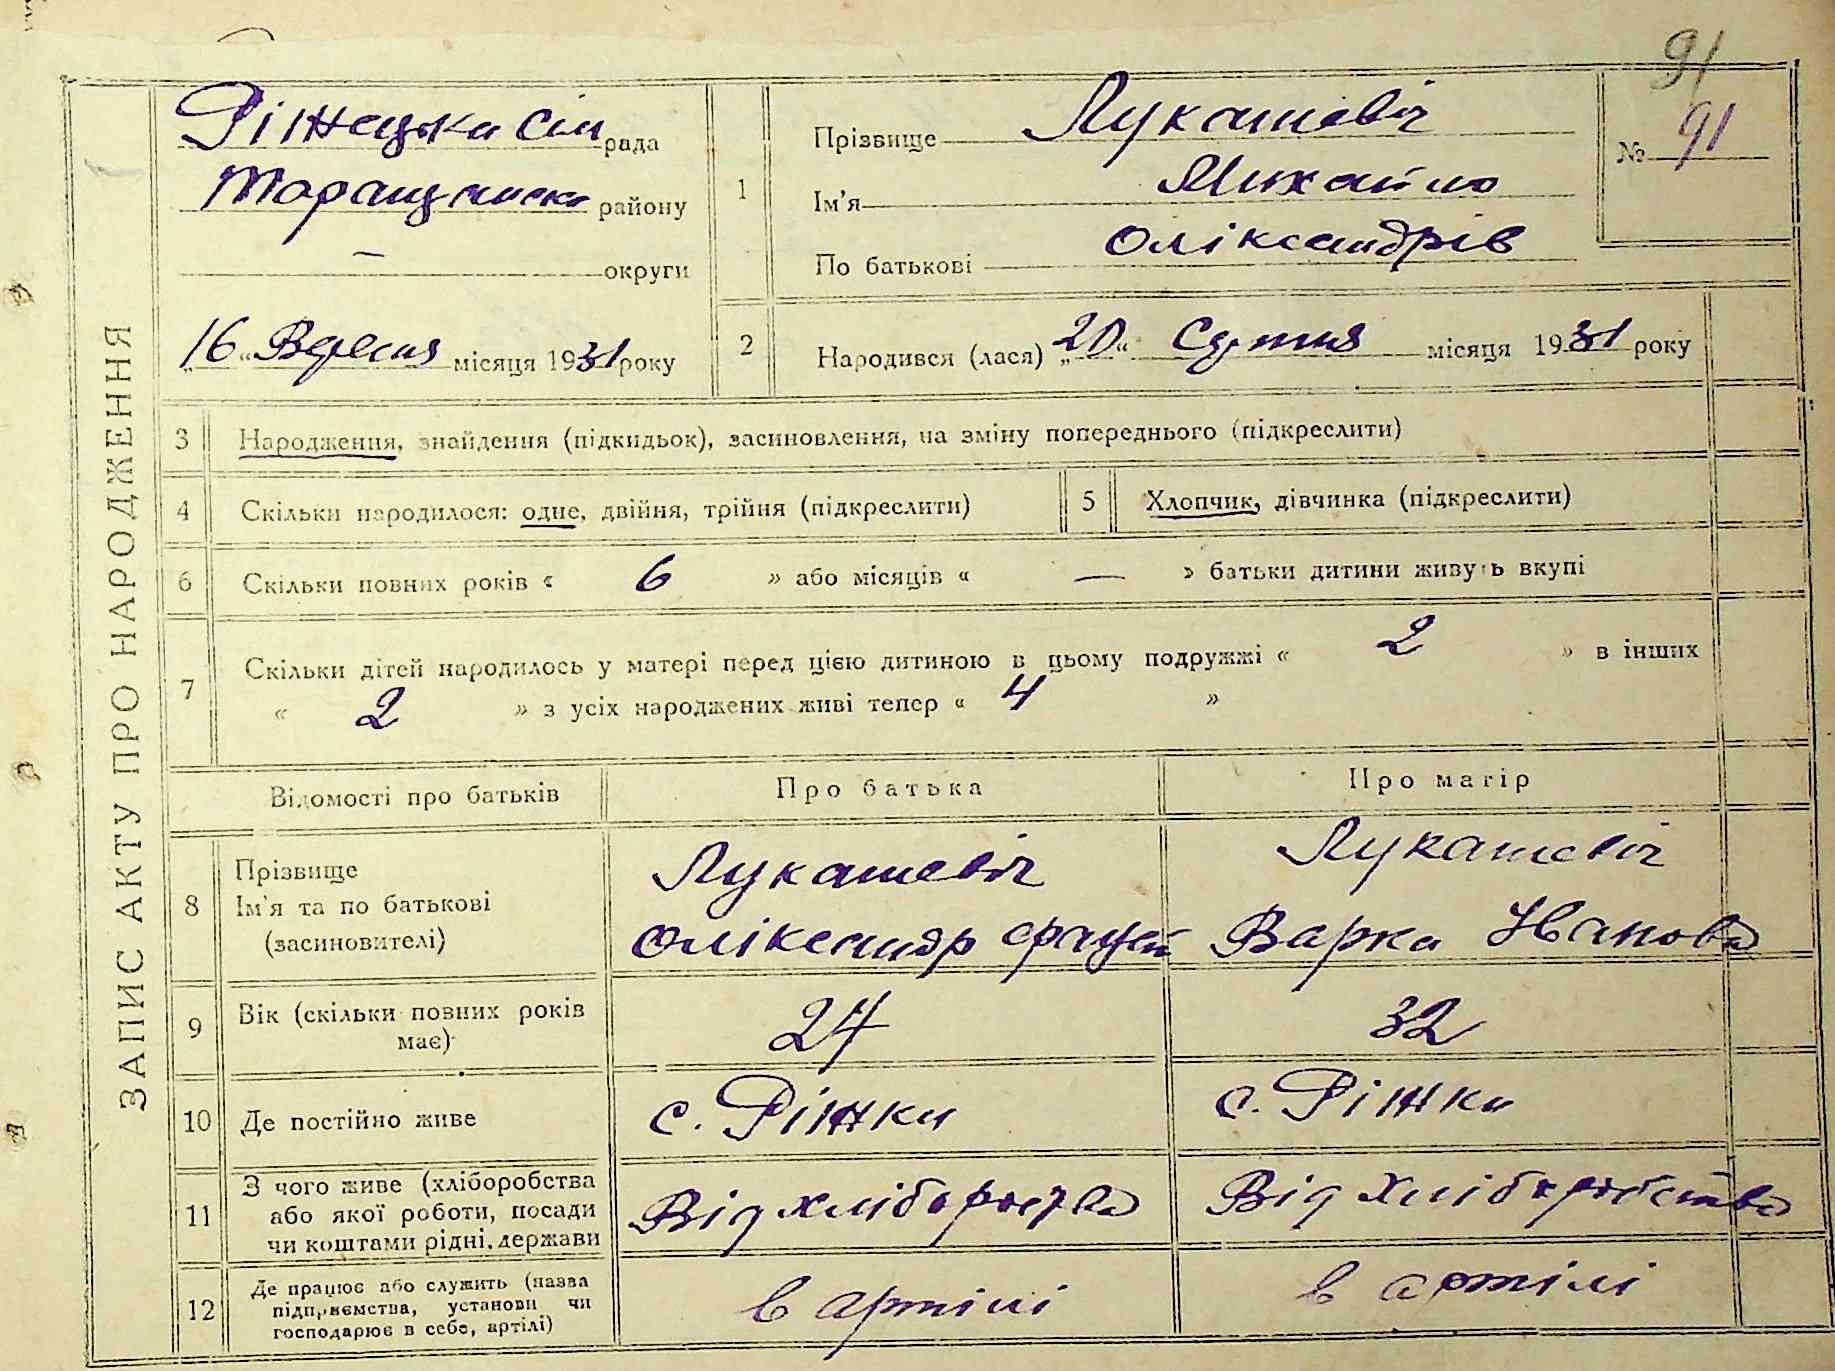 91
Ріжецька сіл рада
Таращанськ району
— округи
„16“ Вересня місяця 1931 року
1
Прізвище Лукашевіч
Ім'я Михайло
По батькові Оліксандрів
№ 91
2
Народився (лася) „20“ Серпня місяця 1931 року
ЗАПИС АКТУ ПРО НАРОДЖЕННЯ
3 Народження, знайдення (підкидьок), засиновлення, на зміну попереднього (підкреслити)
4 Скільки народилося: одне, двійня, трійня (підкреслити)
5 Хлопчик, дівчинка (підкреслити)
6 Скільки повних років « 6 » або місяців « — » батьки дитини живуть вкупі
7 Скільки дітей народилось у матері перед цією дитиною в цьому подружжі « 2 » в інших
« 2 » з усіх народжених живі тепер « 4 »
Відомості про батьків Про батька Про матір
8 Прізвище
Ім'я та по батькові
(засиновителі)
Лукашевіч
Оліксандр
Лукашевіч
Варка Іванова
9 Вік (скільки повних років
має)
24 32
10 Де постійно живе с. Ріжки с. Ріжки
11 З чого живе (хліборобства
або якої роботи, посади
чи коштами рідні, держави
Від хліборобства Від хліборобства
12 Де працює або служить (назва
підприємства, установи чи
господарює в себе, артілі)
в артілі в артілі